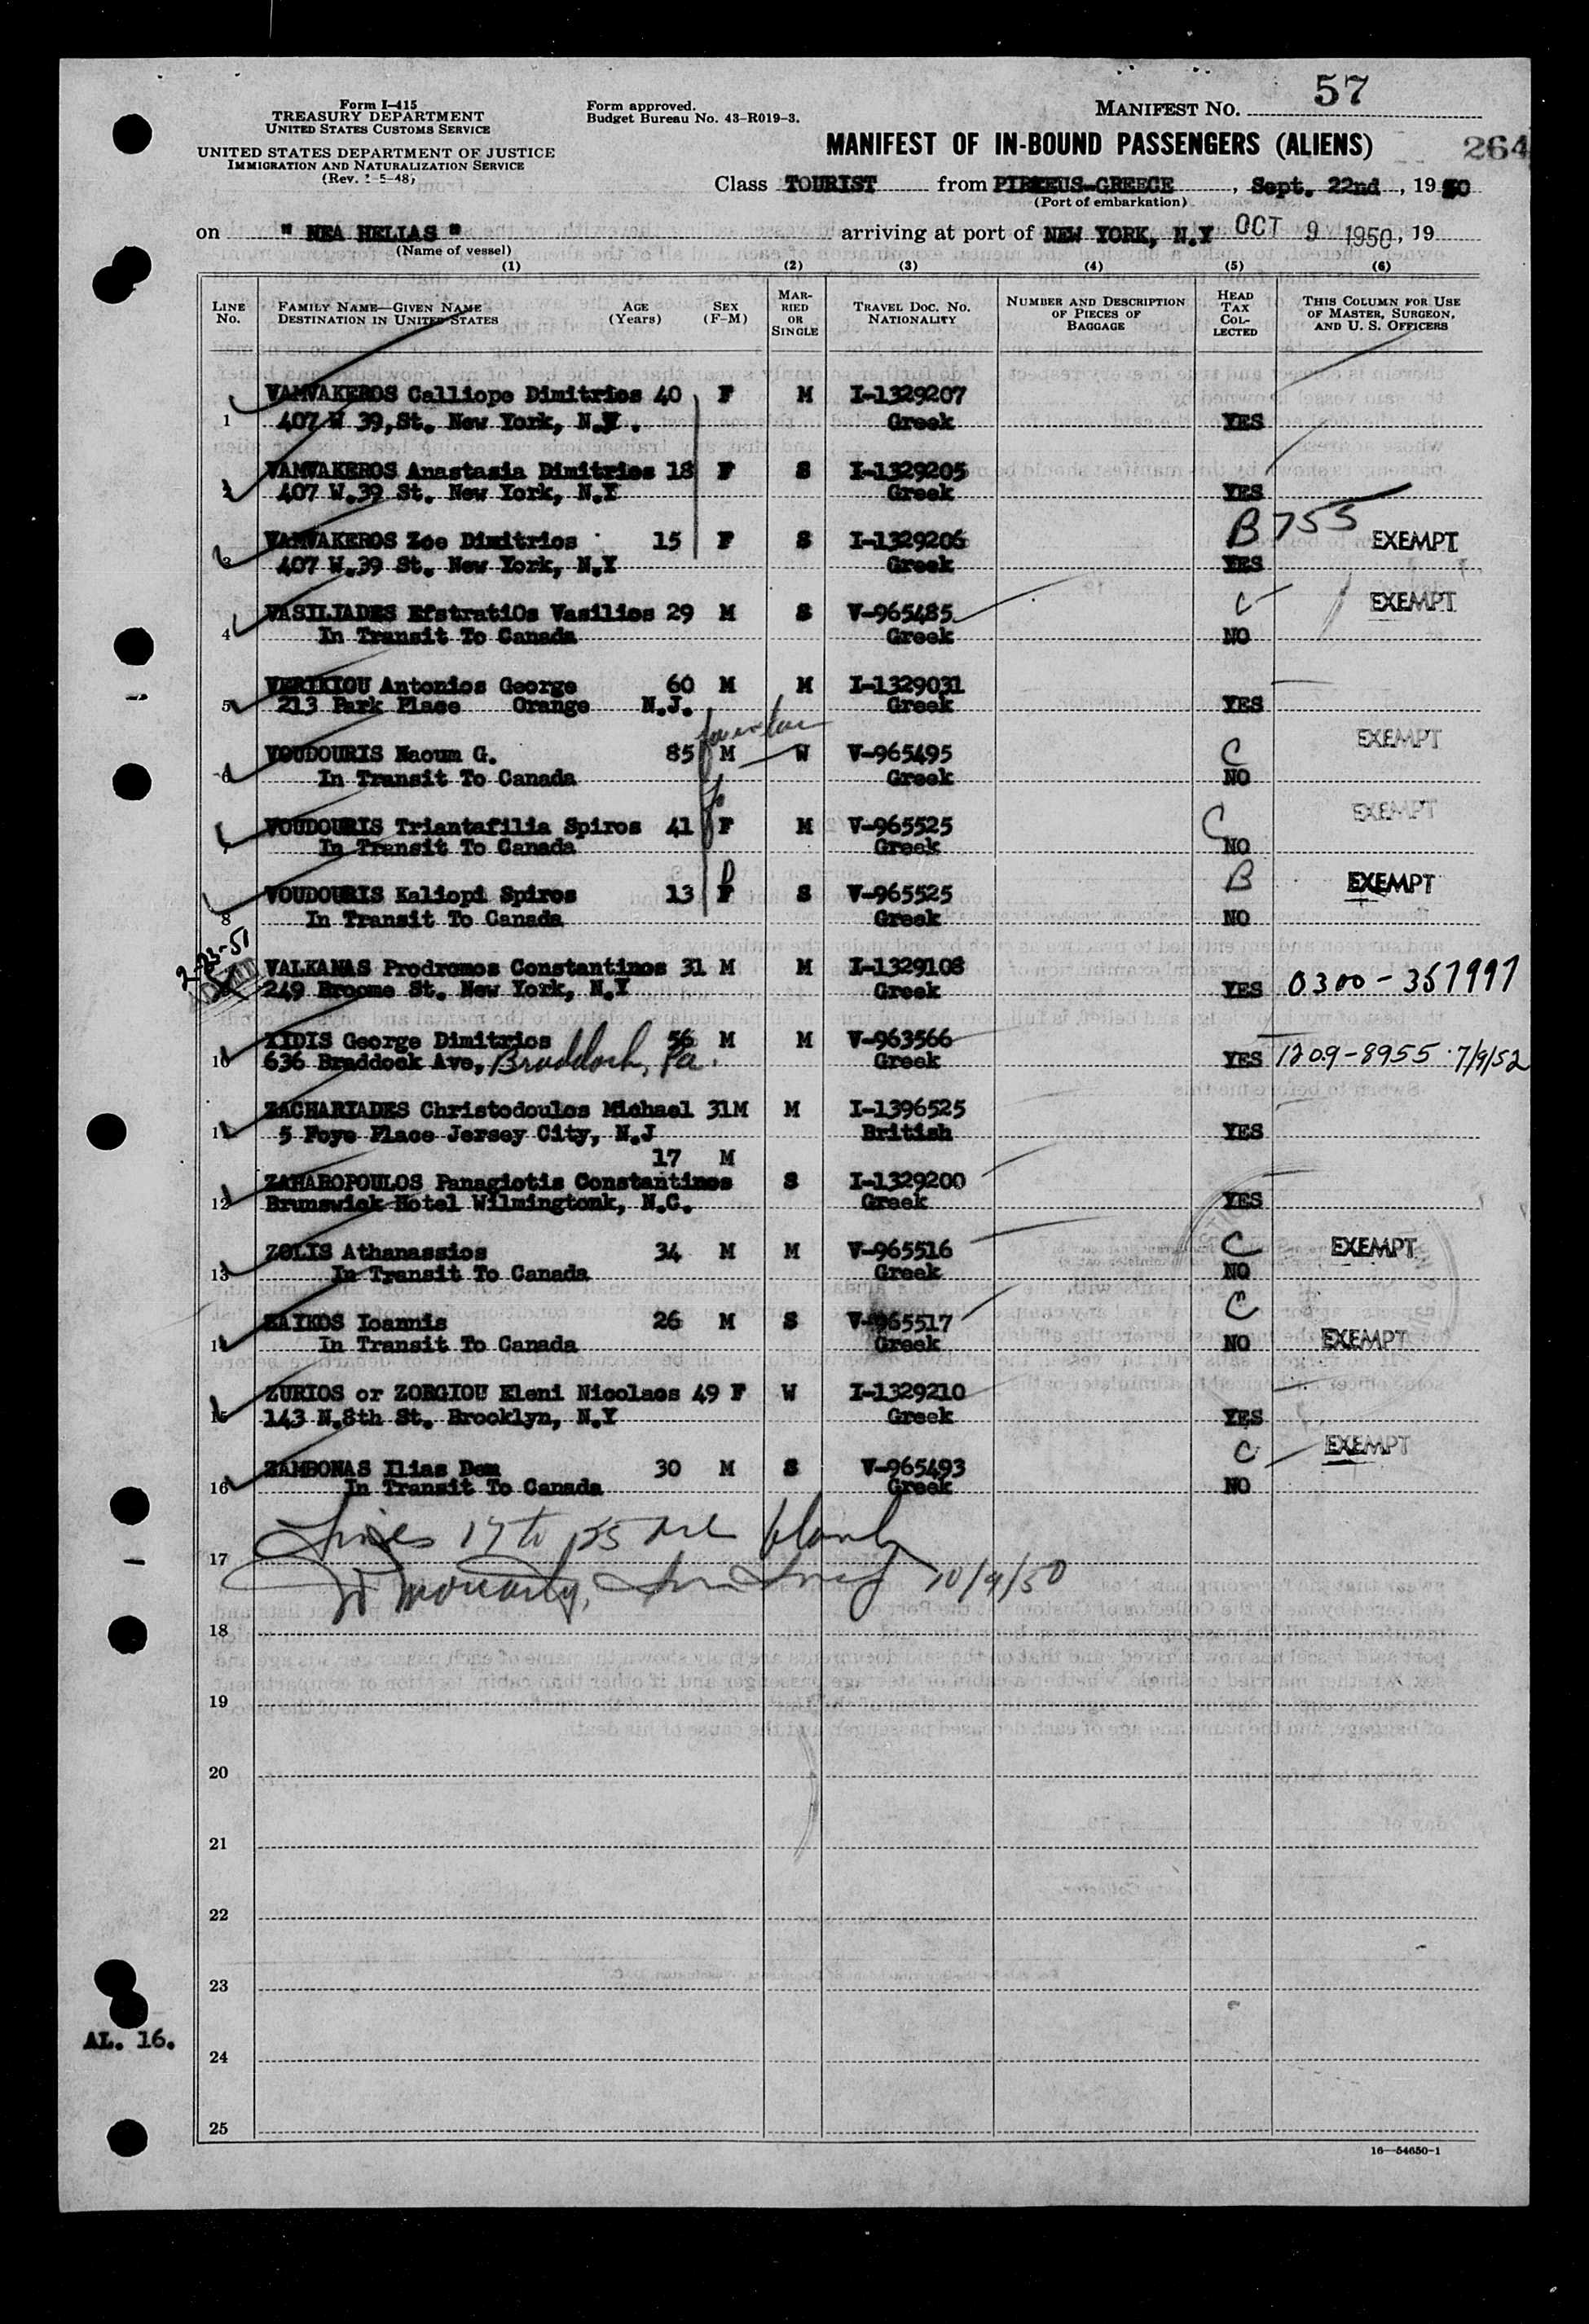 Form I-415
TREASURY DEPARTMENT
UNITED STATES CUSTOMS SERVICE
UNITED STATES DEPARTMENT OF JUSTICE
IMMIGRATION AND NATURALIZATION SERVICE
Form approved.
Budget Bureau No. 43-R019-3.
MANIFEST NO. 57
MANIFEST OF IN-BOUND PASSENGERS (ALIENS)
264
Class TOURIST from PIREEUS-GREECE, Sept. 22nd, 1950
(Port of embarkation)
on " NEA HELLAS " arriving at port of NEW YORK, N.Y OCT 9 1950, 19
(Name of vessel)
(1) (2) (3) (4) (5) (6)
LINE No. FAMILY NAME—GIVEN NAME DESTINATION IN UNITED STATES AGE (Years) SEX (F-M) MARRIED OR SINGLE TRAVEL DOC. NO. NATIONALITY NUMBER AND DESCRIPTION OF PIECES OF BAGGAGE HEAD TAX COLLECTED THIS COLUMN FOR USE OF MASTER, SURGEON, AND U. S. OFFICERS
VAMVAKEROS Calliope Dimitrios 40 F M I-1329207
1 407 W 39,St. New York, N.Y. Greek YES
VAMVAKEROS Anastasia Dimitrios 18 F S I-1329205
2 407 W.39 St. New York, N.Y Greek YES
VAMVAKEROS Zoe Dimitrios 15 F S I-1329206 B 755 EXEMPT
3 407 W.39 St. New York, N.Y Greek YES
VASILIADES EfstratiOs Vasilios 29 M S V-965485 C EXEMPT
4 In Transit To Canada Greek NO
VERIKIOU Antonios George 60 M M I-1329031
5 213 Park Place Orange N.J. Greek YES
VOUDOURIS Naoum G. 85 M W V-965495 C EXEMPT
6 In Transit To Canada Greek NO
VOUDOURIS Triantafilia Spiros 41 F M V-965525 C EXEMPT
7 In Transit To Canada Greek NO
VOUDOURIS Kaliopi Spiros 13 F S V-965525 B EXEMPT
8 In Transit To Canada Greek NO
2-23-51
VALKANAS Prodromos Constantinos 31 M M I-1329108
249 Broome St. New York, N.Y Greek YES 0300-357997
XIDIS George Dimitrios 56 M M V-963566
10 636 Braddock Ave, Braddock, Pa. Greek YES 1209-8955 7/9/52
ZACHARIADES Christodoulos Michael 31M M I-1396525
11 5 Foye Place Jersey City, N.J British YES
17 M
ZAHAROPOULOS Panagiotis Constantinos S I-1329200
12 Brunswick Hotel Wilmingtonk, N.C. Greek YES
ZOLIS Athanassios 34 M M V-965516 C EXEMPT
13 In Transit To Canada Greek NO
ZAIKOS Ioannis 26 M S V-965517 C
14 In Transit To Canada Greek NO EXEMPT
ZURIOS or ZORGIOU Eleni Nicolaos 49 F W I-1329210
15 143 N.8th St. Brooklyn, N.Y Greek YES
ZAMBONAS Ilias Dem 30 M S V-965493 C EXEMPT
16 In Transit To Canada Greek NO
Lines 17 to 25 are blank
17
10/9/50
18
19
20
21
22
23
AL. 16.
24
25
16—54650-1